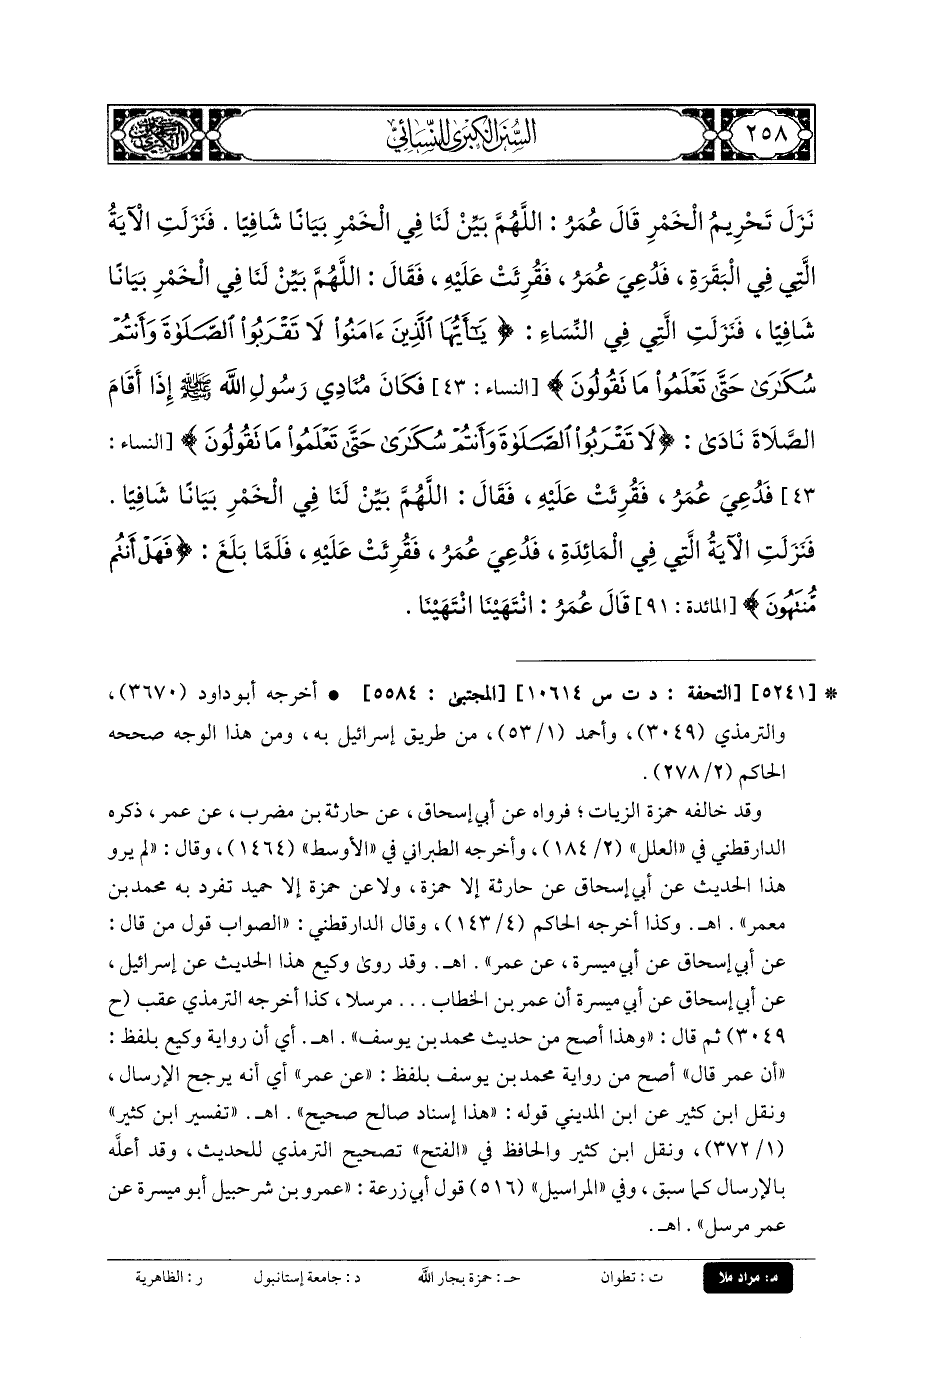 ٢٥٨
السنن الكبرى للنسائي
نَزَلَ تَحْرِيمُ الْخَمْرِ قَالَ عُمَرُ : اللَّهُمَّ بَيِّنْ لَنَا فِي الْخَمْرِ بَيَانًا شَافِيًا . فَنَزَلَتِ الْآيَةُ
الَّتِي فِي الْبَقَرَةِ ، فَدُعِيَ عُمَرُ ، فَقُرِئَتْ عَلَيْهِ ، فَقَالَ : اللَّهُمَّ بَيِّنْ لَنَا فِي الْخَمْرِ بَيَانًا
شَافِيًا ، فَنَزَلَتِ الَّتِي فِي النِّسَاءِ : ﴿ يَٰٓأَيُّهَا ٱلَّذِينَ ءَامَنُوا۟ لَا تَقْرَبُوا۟ ٱلصَّلَوٰةَ وَأَنتُمْ
سُكَٰرَىٰ حَتَّىٰ تَعْلَمُوا۟ مَا تَقُولُونَ ﴾ [النساء : ٤٣] فَكَانَ مُنَادِي رَسُولِ اللَّه ﷺ إِذَا أَقَامَ
الصَّلَاةَ نَادَىٰ : ﴿ لَا تَقْرَبُوا۟ ٱلصَّلَوٰةَ وَأَنتُمْ سُكَٰرَىٰ حَتَّىٰ تَعْلَمُوا۟ مَا تَقُولُونَ ﴾ [النساء :
٤٣] فَدُعِيَ عُمَرُ ، فَقُرِئَتْ عَلَيْهِ ، فَقَالَ : اللَّهُمَّ بَيِّنْ لَنَا فِي الْخَمْرِ بَيَانًا شَافِيًا .
فَنَزَلَتِ الْآيَةُ الَّتِي فِي الْمَائِدَةِ ، فَدُعِيَ عُمَرُ ، فَقُرِئَتْ عَلَيْهِ ، فَلَمَّا بَلَغَ : ﴿ فَهَلْ أَنتُم
مُّنتَهُونَ ﴾ [المائدة : ٩١] قَالَ عُمَرُ : انْتَهَيْنَا انْتَهَيْنَا .
* [٥٢٤١] [التحفة : د ت س ١٠٦١٤] [المجتبى : ٥٥٨٤] • أخرجه أبو داود (٣٦٧٠)،
والترمذي (٣٠٤٩)، وأحمد (١/ ٥٣)، من طريق إسرائيل به، ومن هذا الوجه صححه
الحاكم (٢/ ٢٧٨) .
وقد خالفه حمزة الزيات ؛ فرواه عن أبي إسحاق، عن حارثة بن مضرب، عن عمر، ذكره
الدارقطني في «العلل» (٢/ ١٨٤)، وأخرجه الطبراني في «الأوسط» (١٤٦٤)، وقال : «لم يرو
هذا الحديث عن أبي إسحاق عن حارثة إلا حمزة، ولا عن حمزة إلا حميد تفرد به محمد بن
معمر» . اهـ. وكذا أخرجه الحاكم (٤/ ١٤٣)، وقال الدارقطني : «الصواب قول من قال :
عن أبي إسحاق عن أبي ميسرة، عن عمر» . اهـ. وقد روى وكيع هذا الحديث عن إسرائيل،
عن أبي إسحاق عن أبي ميسرة أن عمر بن الخطاب ... مرسلا، كذا أخرجه الترمذي عقب (ح
٣٠٤٩) ثم قال : «وهذا أصح من حديث محمد بن يوسف» . اهـ. أي أن رواية وكيع بلفظ :
«أن عمر قال» أصح من رواية محمد بن يوسف بلفظ : «عن عمر» أي أنه يرجح الإرسال،
ونقل ابن كثير عن ابن المديني قوله : «هذا إسناد صالح صحيح» . اهـ. «تفسير ابن كثير»
(١/ ٣٧٢)، ونقل ابن كثير والحافظ في «الفتح» تصحيح الترمذي للحديث، وقد أعلَّه
بالإرسال كما سبق، وفي «المراسيل» (٥١٦) قول أبي زرعة : «عمرو بن شرحبيل أبو ميسرة عن
عمر مرسل» . اهـ.
م : مراد ملا ت : تطوان حـ : حمزة بجار اللَّه د : جامعة إستانبول ر : الظاهرية